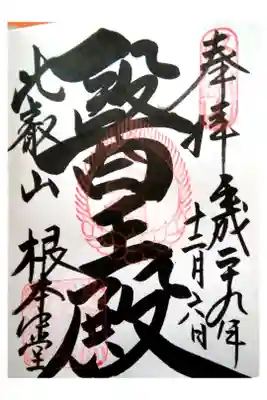 奉拝
平成二十九年
十二月六日
醫王殿
比叡山
根本中堂